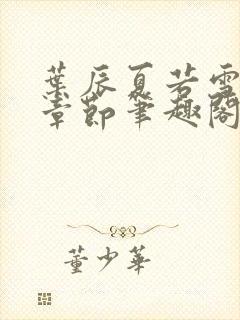 葉辰夏若雪
章節筆趣閣
董少華